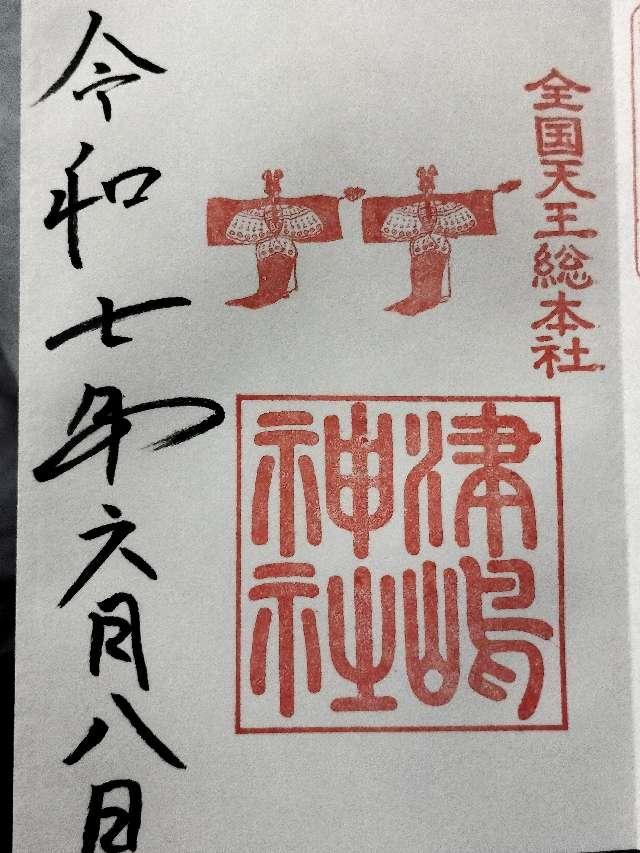 全国天王総本社
津嶋
神社
令和七年六月八日